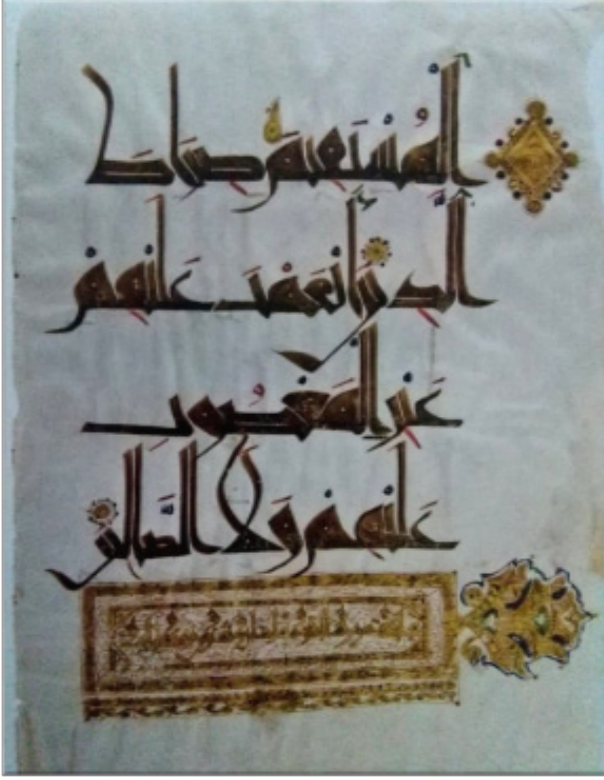 ٱلْمُسْتَقِيمَ صِرَاطَ
ٱلَّذِينَ أَنْعَمْتَ عَلَيْهِمْ
غَيْرِ الْمَغْضُوبِ
عَلَيْهِمْ وَلَا الضَّالِّينَ